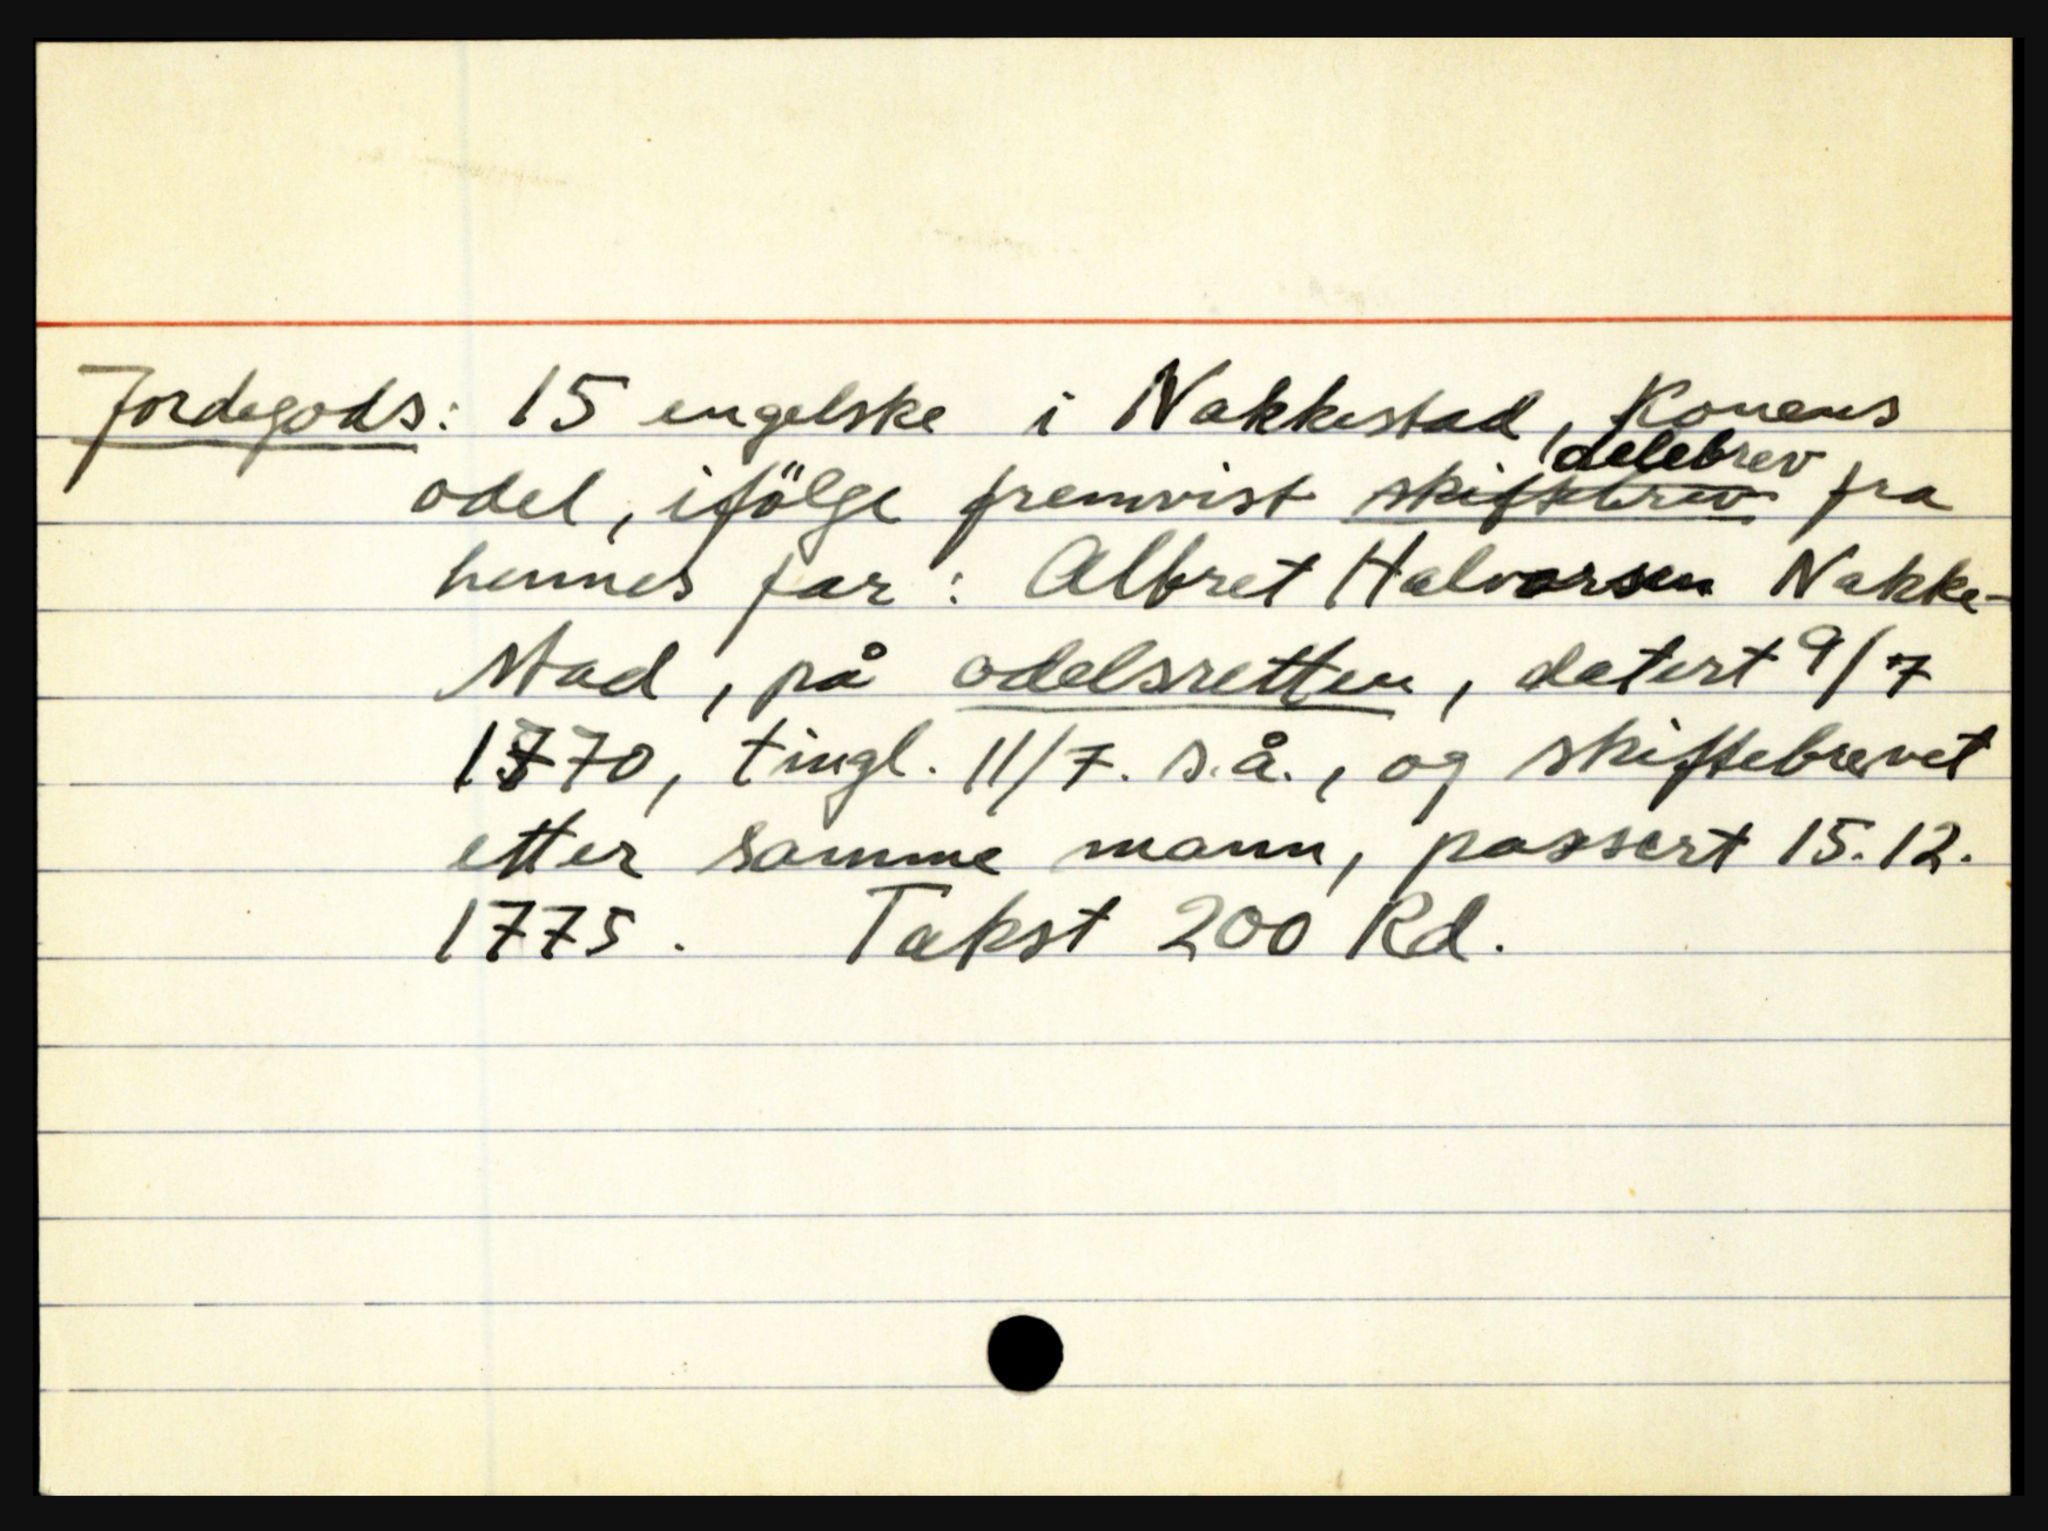 Jordegods: 15 engelske i Nakkestad, Konens
delebrev
odel, ifölge fremvist skiftebrev fra
hennes far: Albret Halvorsen Nakke-
stad, på odelsretten, datert 9/7
1770, tingl. 11/7. s.å., og skiftebrevet
etter samme mann, passert 15.12.
1775. Takst 200 Rd.